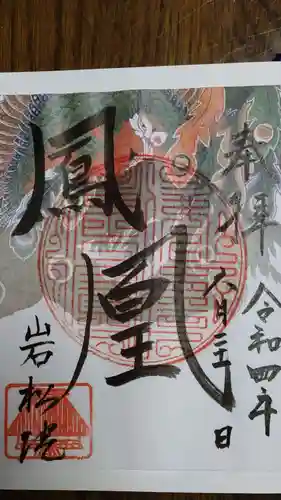 奉拝
令和四年
八月二十日
鳳凰
岩松院